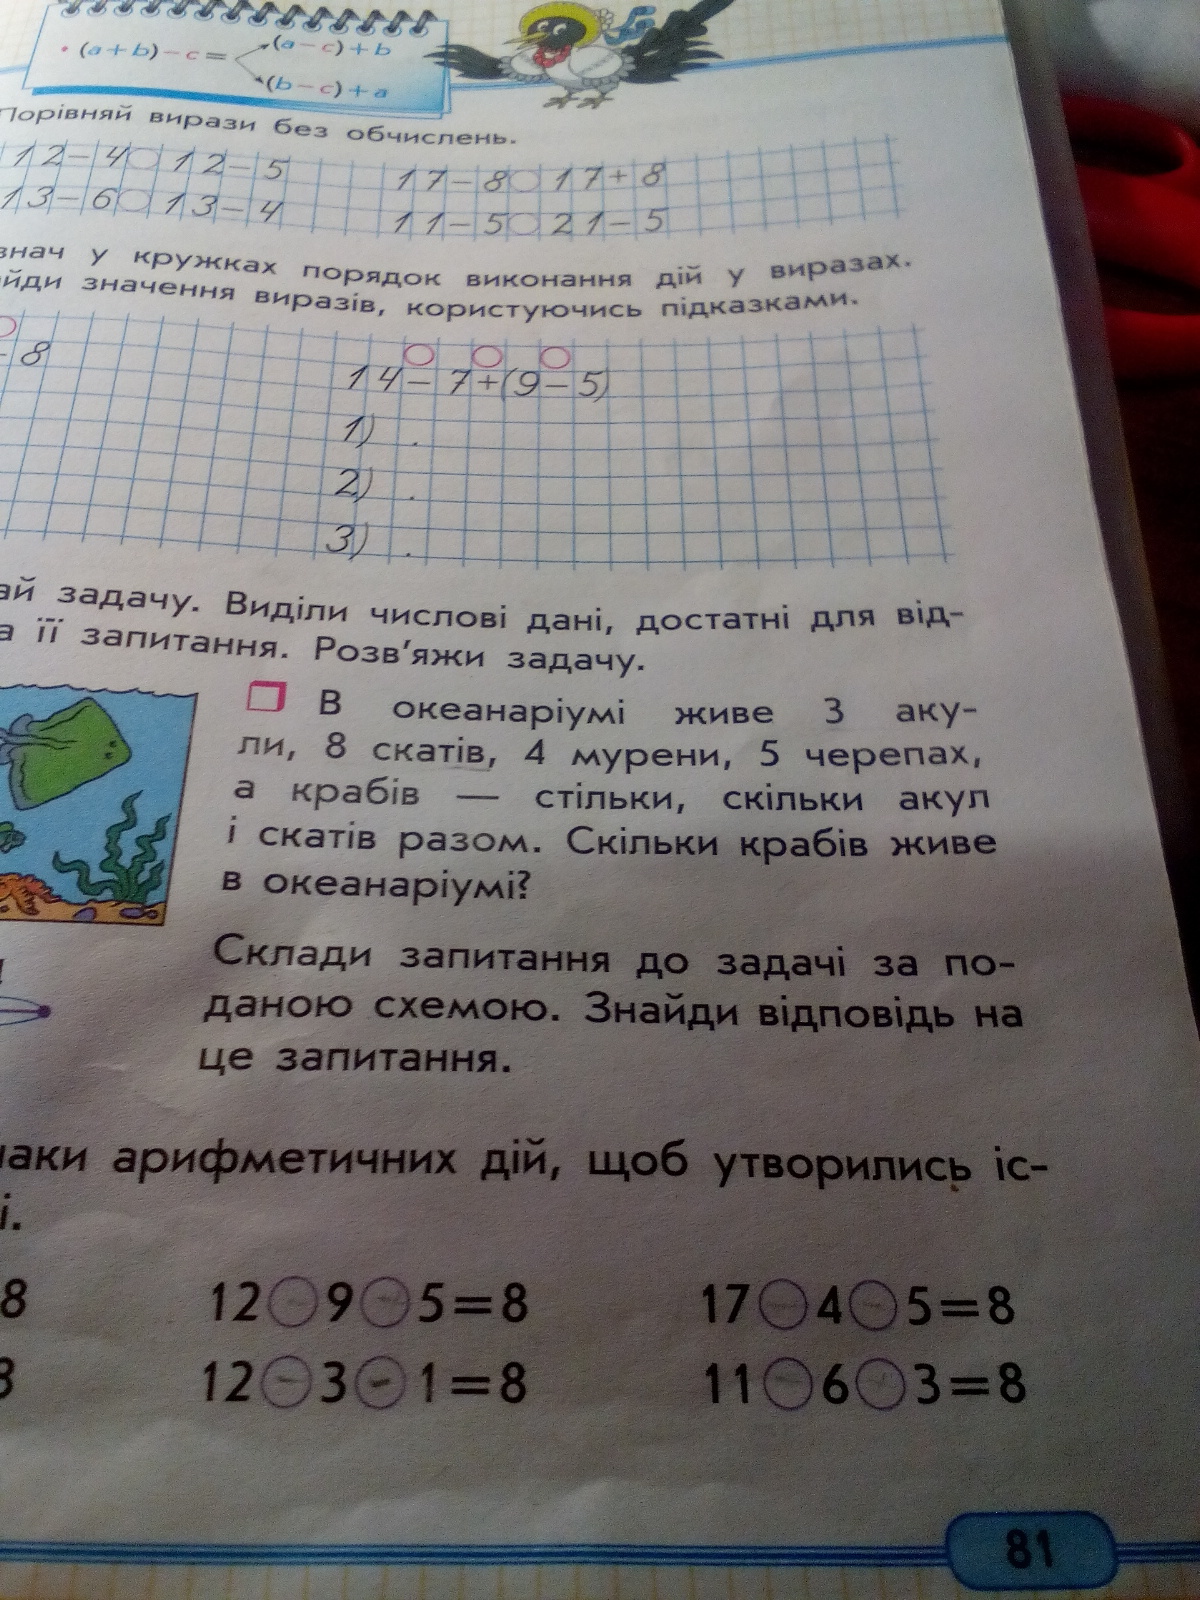 • (a+b)−c= (a−c)+b
(b−c)+a
Порівняй вирази без обчислень.
12−4○12−5 17−8○17+8
13−6○13−4 11−5○21−5
у кружках порядок виконання дій у виразах.
значення виразів, користуючись підказками.
8 14−7+(9−5)
1) .
2) .
3) .
задачу. Виділи числові дані, достатні для від-
її запитання. Розв'яжи задачу.
В океанаріумі живе 3 аку-
ли, 8 скатів, 4 мурени, 5 черепах,
а крабів — стільки, скільки акул
і скатів разом. Скільки крабів живе
в океанаріумі?
Склади запитання до задачі за по-
даною схемою. Знайди відповідь на
це запитання.
арифметичних дій, щоб утворились іс-
8 12○9○5=8 17○4○5=8
12○3○1=8 11○6○3=8
81